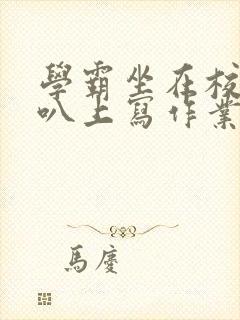 學霸坐在校
叭上寫作業
馬慶